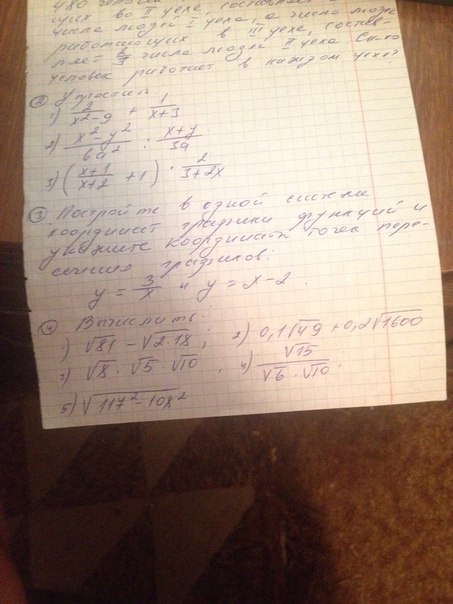 480 человек
щих во II цехе, составляет
числа людей I цеха, а число людей
работающих в III цехе, состав-
ляет числа людей II цеха. Сколь
человек работает в каждом цехе?
② Упростить:
1) 2/(x²-9) + 1/(x+3)
2) (x²-y²)/(6a²) : (x+y)/(3a)
3) ((x+1)/(x+2) + 1) · 2/(3+2x)
③ Постройте в одной системе
координат графики функций и
укажите координаты точек пере-
сечения графиков:
y = 3/x и y = x-2.
④ Вычислить:
1) √81 - √2·18; 2) 0,1√49 + 0,2√1600
3) √8 · √5 · √10, 4) √15/(√6 · √10);
5) √(117² - 108²)